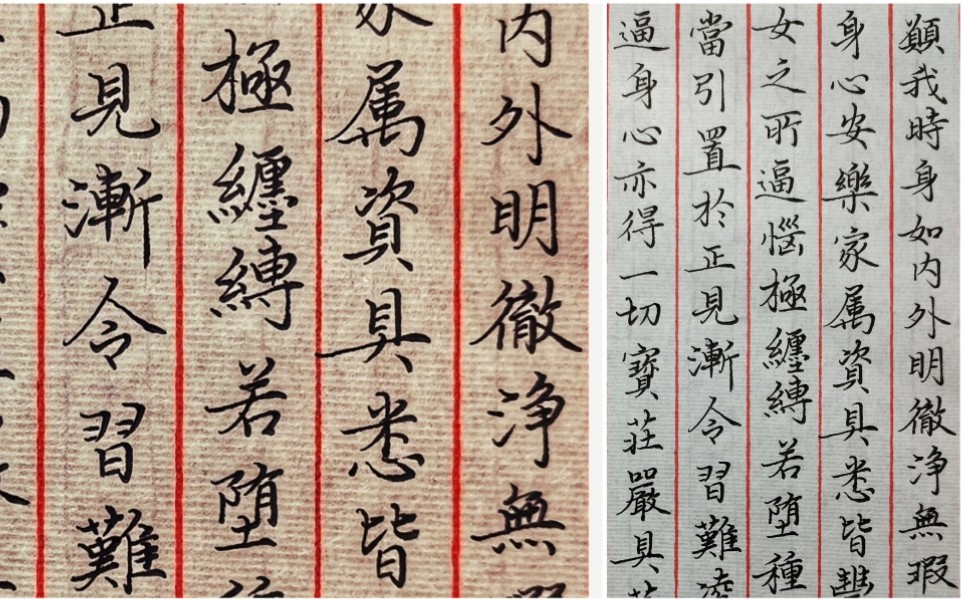 内外明徹浄無
家属資具悉皆
極纏縛若堕
正見漸令習難
願我時身如内外明徹浄無瑕
身心安樂家属資具悉皆豐
女之所逼惱極纏縛若堕種
當引置於正見漸令習難
逼身心亦得一切寶荘嚴具